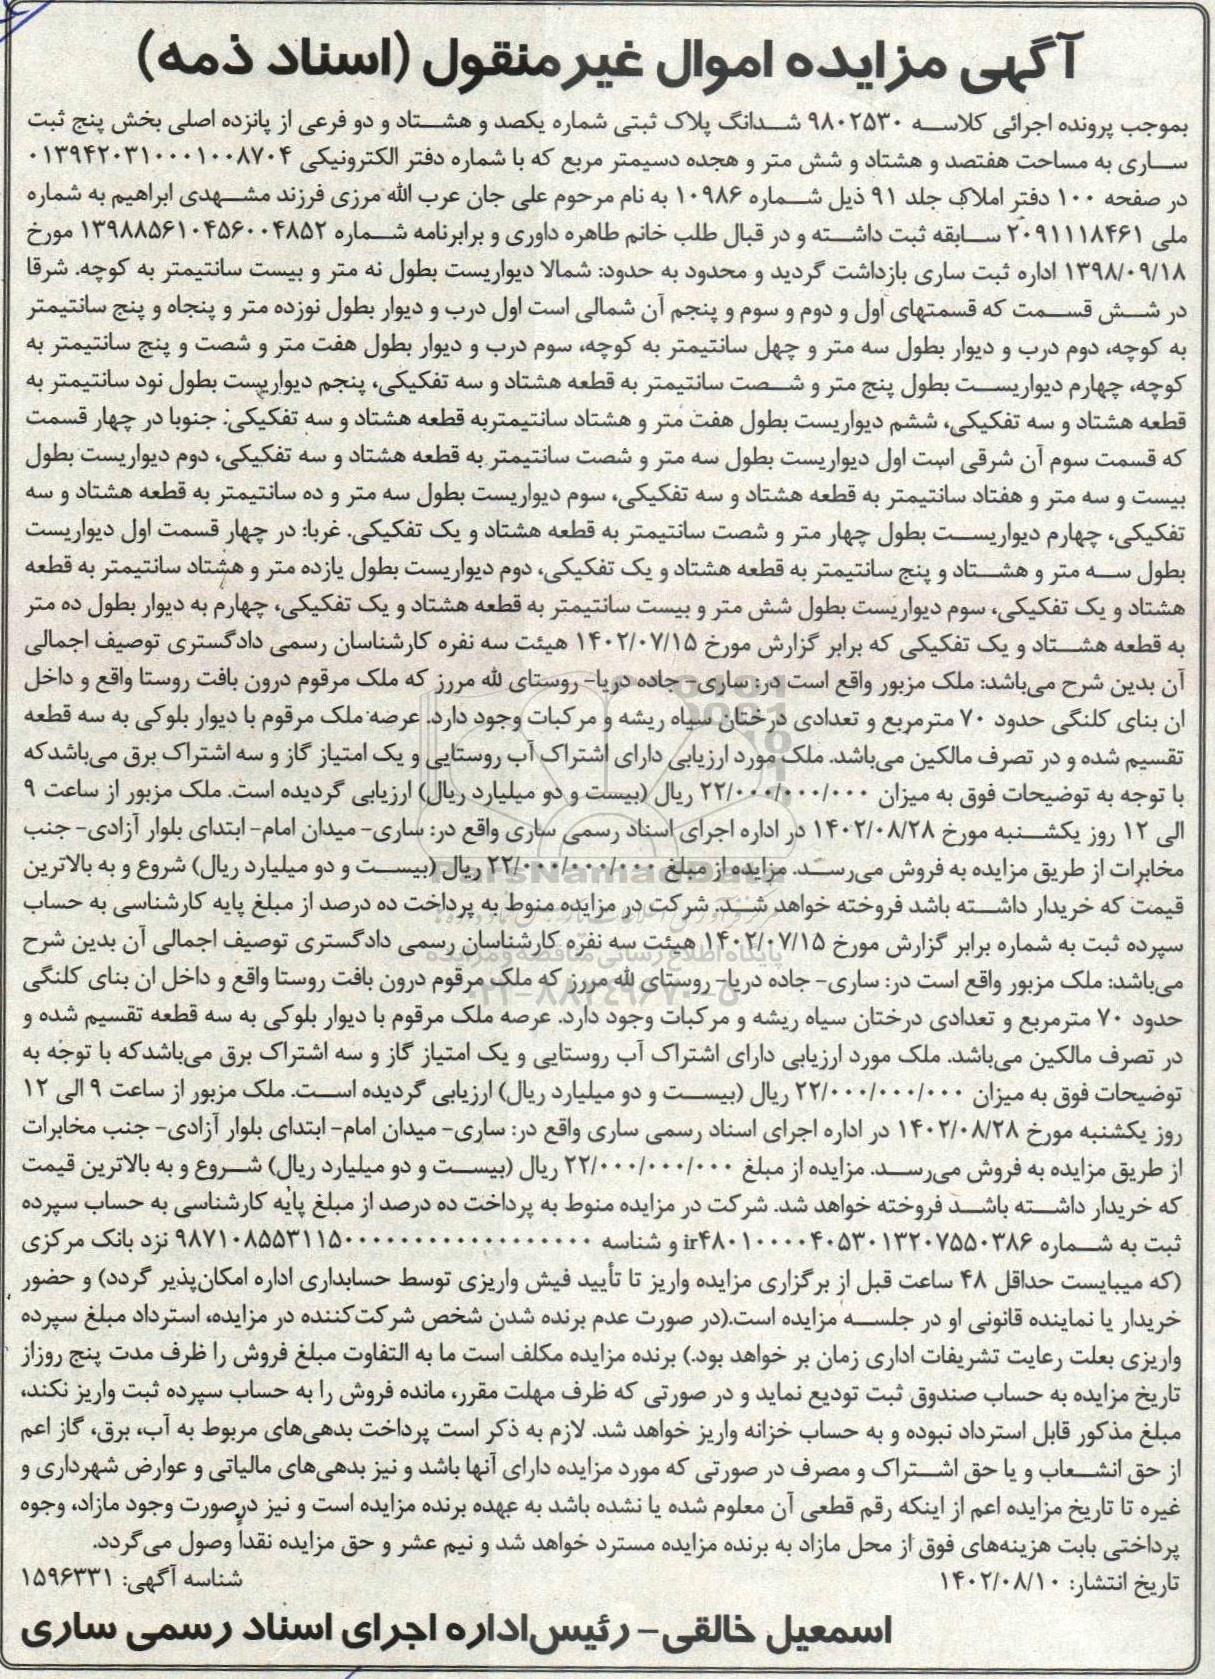 آگهی مزایده اموال غیر منقول (اسناد ذمه)
بموجب پرونده اجرائی کلاسه ۹۸۰۲۵۳۰ ششدانگ پلاک ثبتی شماره یکصد و هشتاد و دو فرعی از پانزده اصلی بخش پنج ثبت
ساری به مساحت هفتصد و هشتاد و شش متر و هجده دسیمتر مربع که با شماره دفتر الکترونیکی ۰۱۳۹۴۲۰۳۱۰۰۰۱۰۰۸۷۰۴
در صفحه ۱۰۰ دفتر املاک جلد ۹۱ ذیل شماره ۱۰۹۸۶ به نام مرحوم علی جان عرب الله مرزی فرزند مشهدی ابراهیم به شماره
ملی ۲۰۹۱۱۱۸۴۶۱ سابقه ثبت داشته و در قبال طلب خانم طاهره داوری و برابرنامه شماره ۱۳۹۸۸۵۶۱۰۴۵۶۰۰۴۸۵۲ مورخ
۱۳۹۸/۰۹/۱۸ اداره ثبت ساری بازداشت گردید و محدود به حدود: شمالا دیواریست بطول نه متر و بیست سانتیمتر به کوچه. شرقا
در شش قسمت که قسمتهای اول و دوم و سوم و پنجم آن شمالی است اول درب و دیوار بطول نوزده متر و پنجاه و پنج سانتیمتر
به کوچه، دوم درب و دیوار بطول سه متر و چهل سانتیمتر به کوچه، سوم درب و دیوار بطول هفت متر و شصت و پنج سانتیمتر به
کوچه، چهارم دیواریست بطول پنج متر و شصت سانتیمتر به قطعه هشتاد و سه تفکیکی، پنجم دیواریست بطول نود سانتیمتر به
قطعه هشتاد و سه تفکیکی، ششم دیواریست بطول هفت متر و هشتاد سانتیمتربه قطعه هشتاد و سه تفکیکی: جنوبا در چهار قسمت
که قسمت سوم آن شرقی است اول دیواریست بطول سه متر و شصت سانتیمتر به قطعه هشتاد و سه تفکیکی، دوم دیواریست بطول
بیست و سه متر و هفتاد سانتیمتر به قطعه هشتاد و سه تفکیکی، سوم دیواریست بطول سه متر و ده سانتیمتر به قطعه هشتاد و سه
تفکیکی، چهارم دیواریست بطول چهار متر و شصت سانتیمتر به قطعه هشتاد و یک تفکیکی. غربا: در چهار قسمت اول دیواریست
بطول سه متر و هشتاد و پنج سانتیمتر به قطعه هشتاد و یک تفکیکی، دوم دیواریست بطول یازده متر و هشتاد سانتیمتر به قطعه
هشتاد و یک تفکیکی، سوم دیواریست بطول شش متر و بیست سانتیمتر به قطعه هشتاد و یک تفکیکی، چهارم به دیوار بطول ده متر
به قطعه هشتاد و یک تفکیکی که برابر گزارش مورخ ۱۴۰۲/۰۷/۱۵ هیئت سه نفره کارشناسان رسمی دادگستری توصیف اجمالی
آن بدین شرح می‌باشد: ملک مزبور واقع است در: ساری- جاده دریا- روستای لله مررز که ملک مرقوم درون بافت روستا واقع و داخل
ان بنای کلنگی حدود ۷۰ مترمربع و تعدادی درختان سیاه ریشه و مرکبات وجود دارد. عرصه ملک مرقوم با دیوار بلوکی به سه قطعه
تقسیم شده و در تصرف مالکین می‌باشد. ملک مورد ارزیابی دارای اشتراک آب روستایی و یک امتیاز گاز و سه اشتراک برق می‌باشدکه
با توجه به توضیحات فوق به میزان ۲۲/۰۰۰/۰۰۰/۰۰۰ ریال (بیست و دو میلیارد ریال) ارزیابی گردیده است. ملک مزبور از ساعت ۹
الی ۱۲ روز یکشنبه مورخ ۱۴۰۲/۰۸/۲۸ در اداره اجرای اسناد رسمی ساری واقع در: ساری- میدان امام- ابتدای بلوار آزادی- جنب
مخابرات از طریق مزایده به فروش می‌رسد. مزایده از مبلغ ۲۲/۰۰۰/۰۰۰/۰۰۰ ریال (بیست و دو میلیارد ریال) شروع و به بالاترین
قیمت که خریدار داشته باشد فروخته خواهد شد. شرکت در مزایده منوط به پرداخت ده درصد از مبلغ پایه کارشناسی به حساب
سپرده ثبت به شماره برابر گزارش مورخ ۱۴۰۲/۰۷/۱۵ هیئت سه نفره کارشناسان رسمی دادگستری توصیف اجمالی آن بدین شرح
می‌باشد: ملک مزبور واقع است در: ساری- جاده دریا- روستای لله مررز که ملک مرقوم درون بافت روستا واقع و داخل ان بنای کلنگی
حدود ۷۰ مترمربع و تعدادی درختان سیاه ریشه و مرکبات وجود دارد. عرصه ملک مرقوم با دیوار بلوکی به سه قطعه تقسیم شده و
در تصرف مالکین می‌باشد. ملک مورد ارزیابی دارای اشتراک آب روستایی و یک امتیاز گاز و سه اشتراک برق می‌باشدکه با توجه به
توضیحات فوق به میزان ۲۲/۰۰۰/۰۰۰/۰۰۰ ریال (بیست و دو میلیارد ریال) ارزیابی گردیده است. ملک مزبور از ساعت ۹ الی ۱۲
روز یکشنبه مورخ ۱۴۰۲/۰۸/۲۸ در اداره اجرای اسناد رسمی ساری واقع در: ساری- میدان امام- ابتدای بلوار آزادی- جنب مخابرات
از طریق مزایده به فروش می‌رسد. مزایده از مبلغ ۲۲/۰۰۰/۰۰۰/۰۰۰ ریال (بیست و دو میلیارد ریال) شروع و به بالاترین قیمت
که خریدار داشته باشد فروخته خواهد شد. شرکت در مزایده منوط به پرداخت ده درصد از مبلغ پایه کارشناسی به حساب سپرده
ثبت به شماره ir۴۸۰۱۰۰۰۰۴۰۵۳۰۱۳۲۰۷۵۵۰۳۸۶ و شناسه ۹۸۷۱۰۸۵۵۳۱۱۵۰۰۰۰۰۰۰۰۰۰۰۰۰۰۰۰۰۰ نزد بانک مرکزی
(که میبایست حداقل ۴۸ ساعت قبل از برگزاری مزایده واریز تا تأیید فیش واریزی توسط حسابداری اداره امکان‌پذیر گردد) و حضور
خریدار یا نماینده قانونی او در جلسه مزایده است.(در صورت عدم برنده شدن شخص شرکت‌کننده در مزایده، استرداد مبلغ سپرده
واریزی بعلت رعایت تشریفات اداری زمان بر خواهد بود.) برنده مزایده مکلف است ما به التفاوت مبلغ فروش را ظرف مدت پنج روزاز
تاریخ مزایده به حساب صندوق ثبت تودیع نماید و در صورتی که ظرف مهلت مقرر، مانده فروش را به حساب سپرده ثبت واریز نکند،
مبلغ مذکور قابل استرداد نبوده و به حساب خزانه واریز خواهد شد. لازم به ذکر است پرداخت بدهی‌های مربوط به آب، برق، گاز اعم
از حق انشعاب و یا حق اشتراک و مصرف در صورتی که مورد مزایده دارای آنها باشد و نیز بدهی‌های مالیاتی و عوارض شهرداری و
غیره تا تاریخ مزایده اعم از اینکه رقم قطعی آن معلوم شده یا نشده باشد به عهده برنده مزایده است و نیز درصورت وجود مازاد، وجوه
پرداختی بابت هزینه‌های فوق از محل مازاد به برنده مزایده مسترد خواهد شد و نیم عشر و حق مزایده نقداً وصول می‌گردد.
تاریخ انتشار: ۱۴۰۲/۰۸/۱۰ شناسه آگهی: ۱۵۹۶۳۳۱
اسمعیل خالقی- رئیس‌اداره اجرای اسناد رسمی ساری
ParsNamadData
پایگاه اطلاع رسانی مناقصه و مزایده
۰۲۱-۸۸۳۴۹۶۷۰-۵